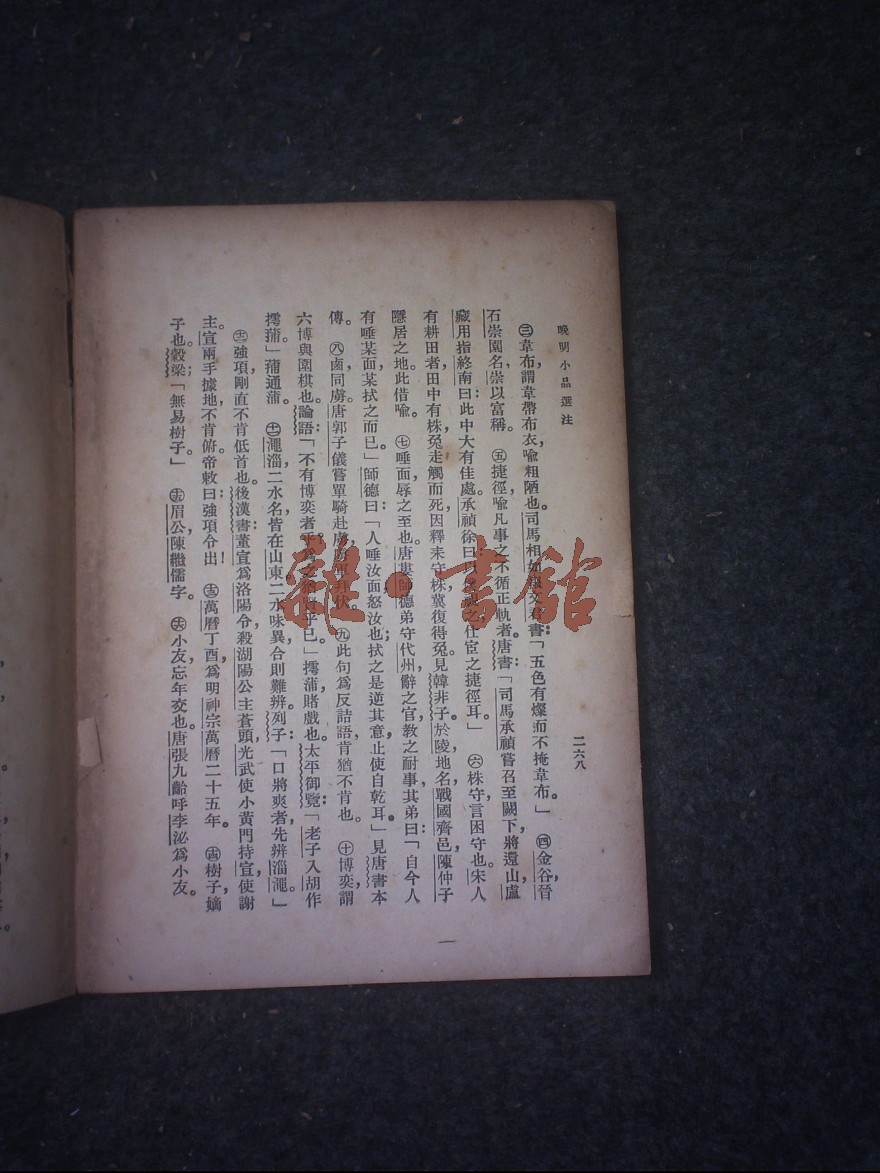 晚明小品選注
二六八
㊂韋布，謂韋帶布衣，喻粗陋也。司馬相如 文君書：「五色有燦，而不掩韋布。」 ㊃金谷，晉
石崇園名，崇以富稱。 ㊄捷徑，喻凡事之不循正軌者。唐書：「司馬承禎嘗召至闕下，將還山，盧
藏用指終南曰：此中大有佳處。承禎徐曰：以 之，仕宦之捷徑耳。」 ㊅株守，言困守也。宋人
有耕田者，田中有株，兔走觸而死，因釋耒守株，冀復得兔。見韓非子。於陵，地名，戰國齊邑，陳仲子
隱居之地，此借喻。 ㊆唾面，辱之至也。唐婁師德弟守代州，辭之官，教之耐事。其弟曰：「自今人
有唾某面，某拭之而已。」師德曰：「人唾汝面，怒汝也；拭之，是逆其意，止使自乾耳。」見唐書本
傳。 ㊇鹵同虜，唐郭子儀嘗單騎赴虜， 拜伏。 ㊈此句為反詰語，肯猶不肯也。 ㊉博奕，謂
六博與圍棋也。論語：「不有博奕者乎？為之猶賢乎已。」摴蒲，賭戲也。太平御覽：「老子入胡作
摴蒱。」蒱通蒲。 ㊉一澠淄，二水名，皆在山東，二水味異，合則難辨。列子：「口將爽者，先辨淄澠。」
㊉二強項，剛直不肯低首也。後漢書：董宣為洛陽令，殺湖陽公主蒼頭，光武使小黃門持宣使謝
主。宣兩手據地，不肯俯。帝敕曰：強項令出！ ㊉三萬曆丁酉，為明神宗萬曆二十五年。 ㊉四樹子，嫡
子也。穀梁：「無易樹子。」 ㊉五眉公，陳繼儒字。 ㊉六小友，忘年交也。唐張九齡呼李泌為小友。
雜·書館